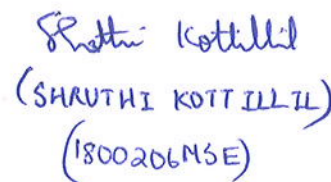 Shruthi Kottillil
(SHRUTHI KOTTILLIL)
(1800206MSE)